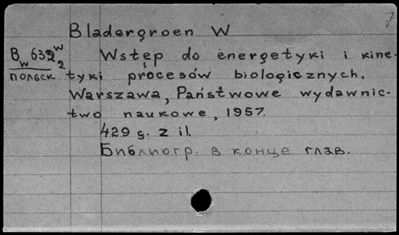 Bladergroen W
B 632 W
w 2
польск
Wstęp do energetyki i kine-
tyki procesów biologicznych.
Warszawa, Państwowe wydawnic-
two naukowe, 1957.
429 s. z il.
Библиогр. в конце глав.